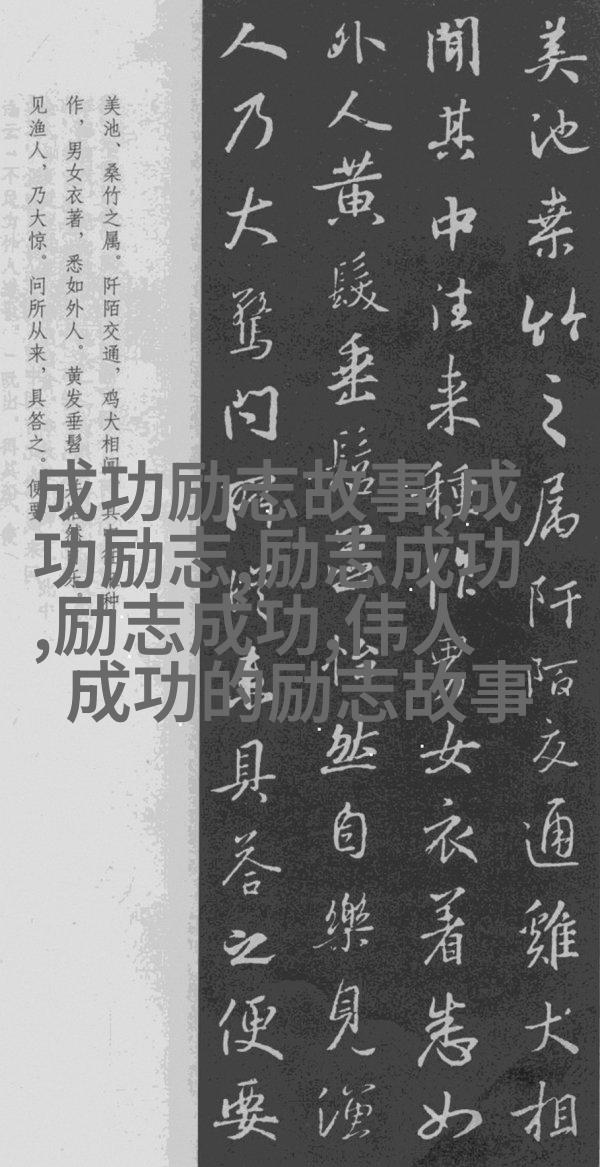 美池桒竹之属阡陌交通雞犬相
聞其中往来種作男女衣着悉如
外人黄髮垂髫並怡然自樂見漁
人乃大驚問所從来具答之便要
美池、桑竹之属。阡陌交通，鸡犬相闻。其种
作，男女衣著，悉如外人。黄发垂髫然
见渔人，乃大惊。问所从来，具答之。便要
成功励志故事,成
功励志,励志成功
,励志成功,伟人
成功的励志故事